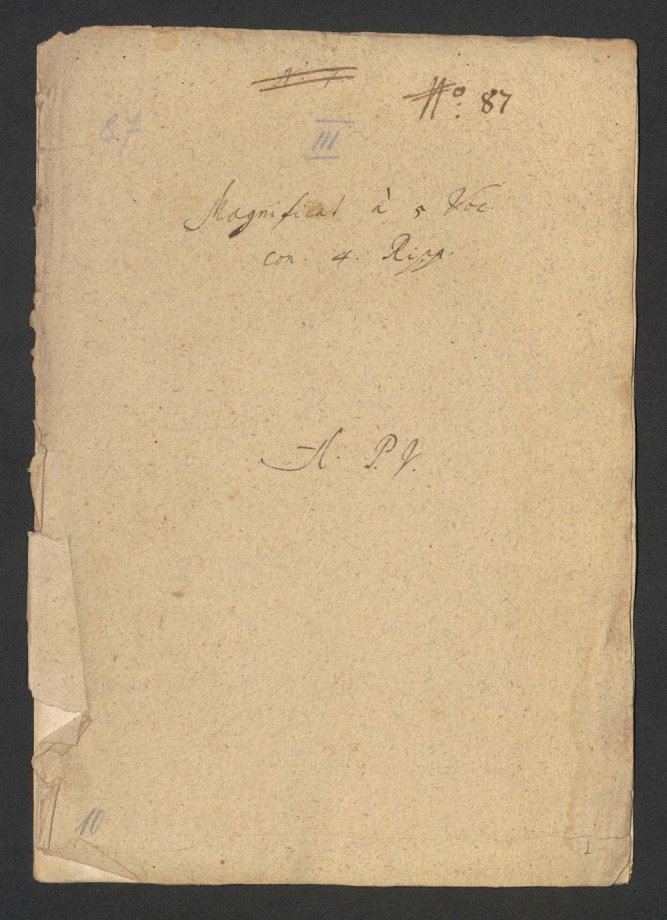 No: 87
87
III
Magnificat à 5 Voc.
con. 4. Ripp.
A. P. V.
10
1